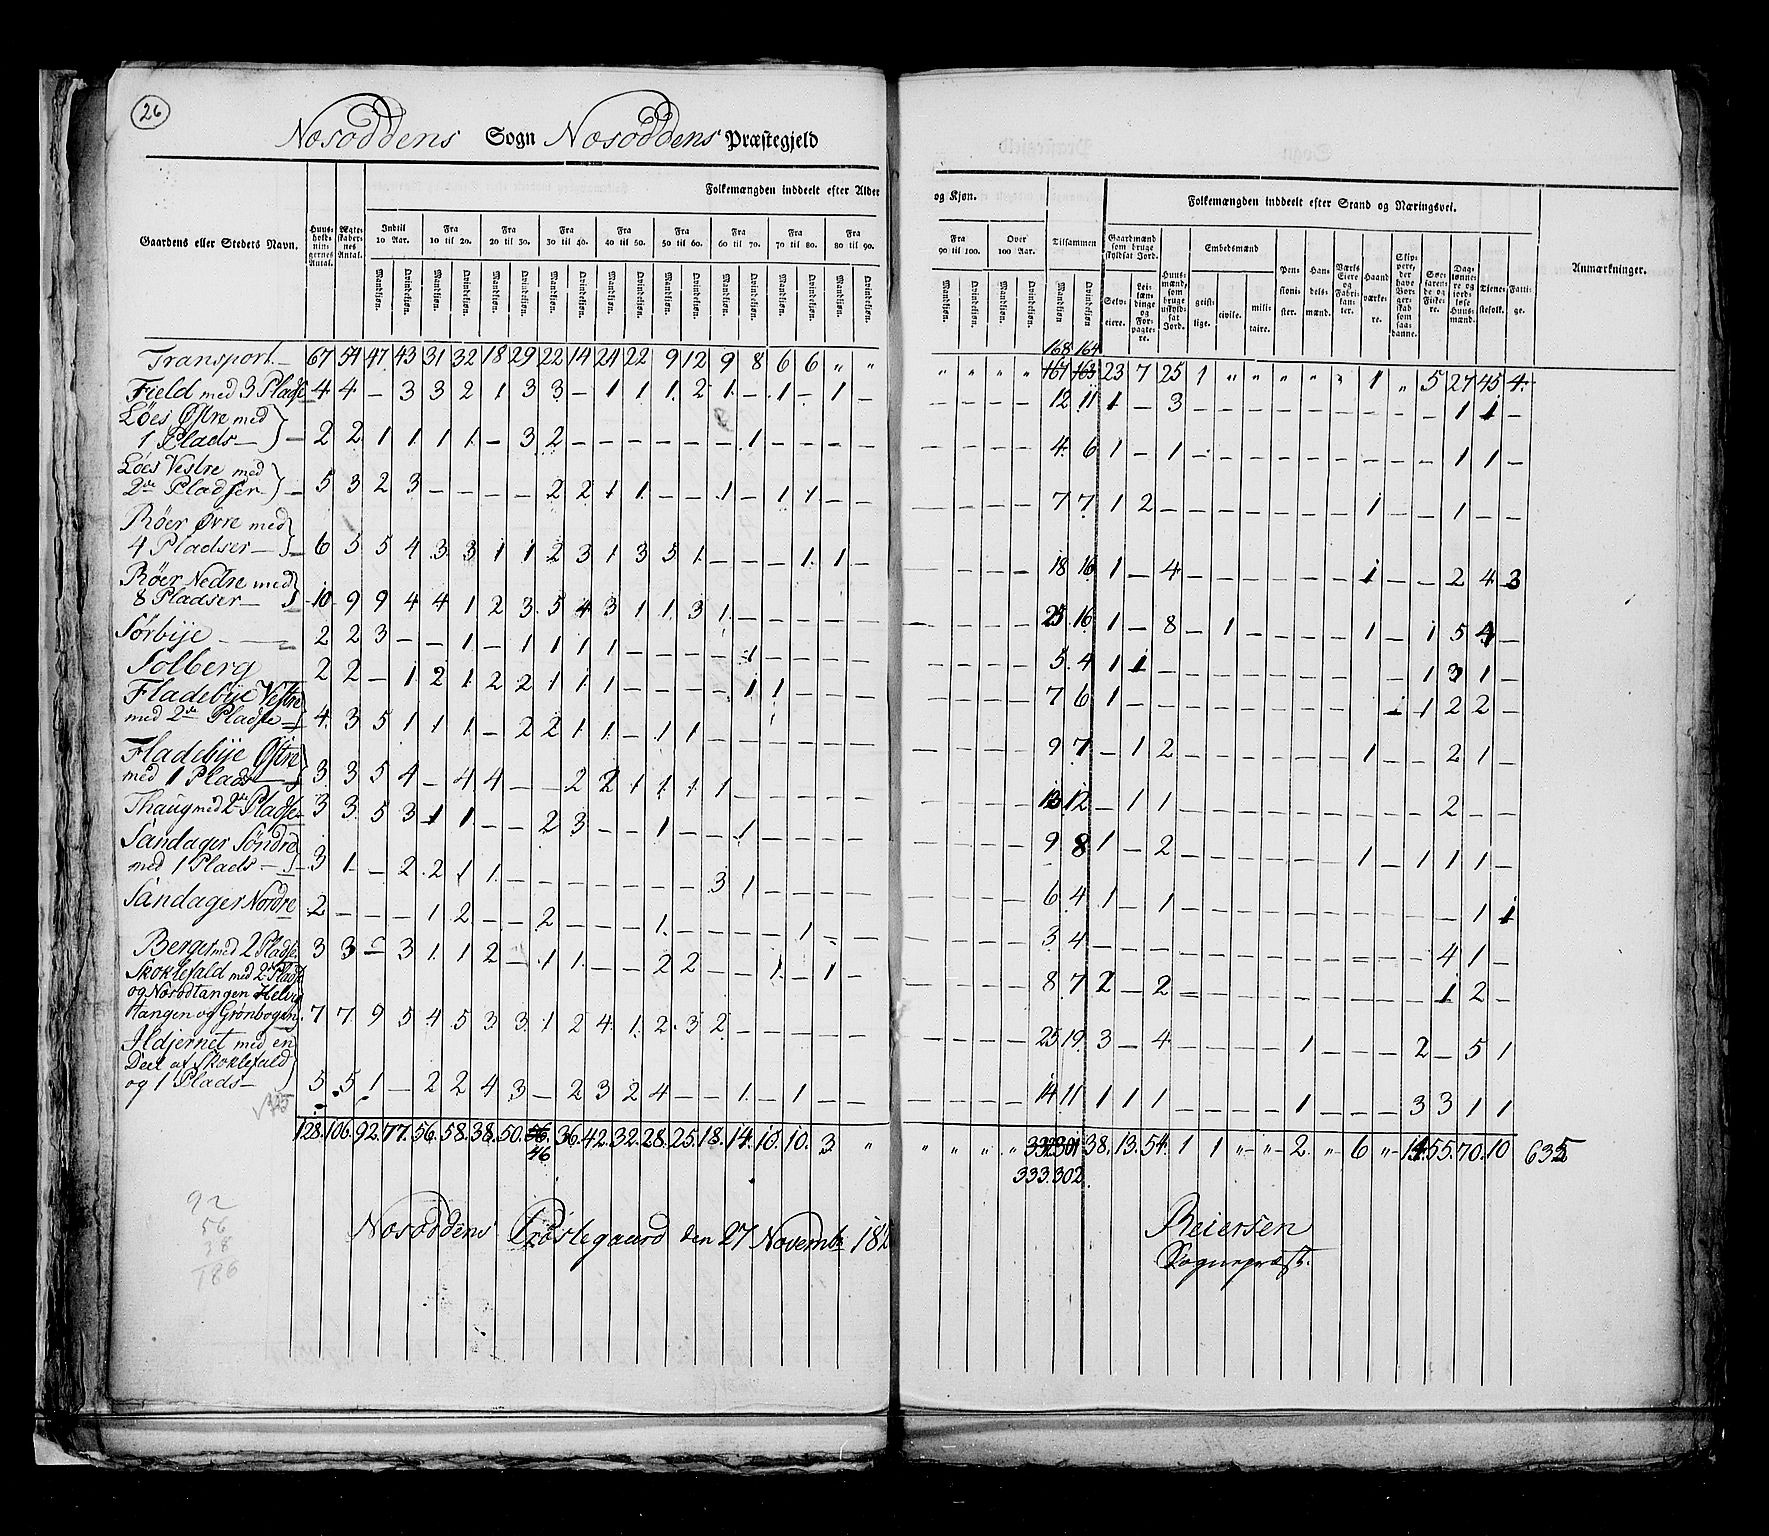 26
Næsoddens Sogn Næsoddens Præstegjeld
Folkemængden inddeelt efter Alder
og Kjøn.
Folkemængden inddeelt efter Stand og Næringsvei.
Gaardens eller Stedets Navn.
Huusholdningernes Antal.
Ægteskabernes Antal.
Indtil 10 Aar.
Fra 10 til 20.
Fra 20 til 30.
Fra 30 til 40.
Fra 40 til 50.
Fra 50 til 60.
Fra 60 til 70.
Fra 70 til 80.
Fra 80 til 90.
Fra 90 til 100.
Over 100 Aar.
Tilsammen
Mandkjøn. Qvindekjøn.
Gaardmænd som bruge skyldsat Jord.
Selveiere.
Leilændinge og Forpagtere.
Huusmænd, som bruge uskyldsat Jord.
Embedsmænd
geistlige.
civile.
militaire.
Pensionister.
Handelsmænd.
Værks Eiere og Fabrikanter.
Haandværkere.
Søefarende og Fiskere.
Daglønnere og jordløse Huusmænd.
Tjenestefolk.
Fattige.
Anmærkninger.
168 164
Transport 67 54 47 43 31 32 18 29 22 14 24 22 9 12 9 8 6 6 " " " " " " 167 163 23 7 25 1 " " " " " 1 " 5 27 45 4
Field med 3 Pladse 4 4 – 3 3 2 1 3 3 – 1 1 1 2 1 – 1 – 1 – – – – – 12 11 1 – 3 – – – – – – – – – 1 1 –
Løes Østre med
1 Plads – 2 2 1 1 1 1 – 3 2 – – – – – – 1 – – – – – – – – 4 6 1 – 1 – – – – – – – – – 1 1 –
Løes Vestre med
2de Pladser – 5 3 2 3 – – – – 2 2 1 1 – – 1 – 1 1 – – – – – – 7 7 1 2 – – – – – – – 1 – – 1 – –
Röer Øvre med
4 Pladser – 6 5 5 4 3 3 1 1 2 3 1 3 5 1 – – – 1 1 – – – – – 18 16 1 – 4 – – – – – – 1 – – 2 4 3
Röer Nedre med
8 Pladser – 10 9 9 4 4 1 2 3 5 4 3 1 1 3 1 – – – – – – – – – 25 16 1 – 8 – 1 – – – – 1 – 1 5 4 –
Sörbije 2 2 3 – – 1 – 1 1 1 1 – – – – 1 – – – – – – – – 5 4 1 1 – – – – – – – – – 1 3 1 –
Solberg 2 2 – 1 2 1 2 2 1 1 1 – – – – 1 1 – – – – – – – 7 6 1 – – – – – – – – – 1 1 2 2 –
Fladebije Vestre
med 2de Pladse 4 3 5 1 1 1 – 2 2 1 1 – 1 1 – – – – – – – – – – 9 7 – 1 2 – – – – – – 1 – – 2 1 –
Fladebije Østre
med 1 Plads 3 3 5 4 – 4 4 – – 2 2 1 1 1 1 – – – – – – – – – 13 12 – 1 1 – – – – – – – – – 2 – –
Thaug med 2de Pladse 3 3 5 3 1 1 – – 2 3 – – 1 – – 1 – – – – – – – – 9 8 1 – 2 – – – – – – 1 – 1 1 1 –
Sandager Söndre
med 1 Plads – 3 1 – 2 2 1 1 – – – – – – – 3 1 – – – – – – – – 6 4 1 – 1 – – – – – – – – – – 1 1
Sandager Nordre 2 – – – 1 2 – – 2 – – – 1 – – – – 1 – – – – – – 3 4 – – – – – – – – – – – – 4 1 –
Berget med 2 Pladse 3 3 – 3 1 1 2 – 1 1 – – 2 2 – – 1 – 1 – – – – – 8 7 2 – 2 – – – – – – – – – 1 2 –
Skoklefald med 2de Pladse
og Næsodtangen Helvig
tangen og Grönbogen 7 7 9 5 4 5 3 3 1 2 4 1 2 3 2 – – – – – – – – – 25 19 3 – 4 – – – – 1 – – – 2 – 5 1
Ildjernet med en
Deel af Skoklefald
og 1 Plads – 5 5 1 – 2 2 4 3 – 2 3 2 4 – – 1 – 1 – – – – – – 14 11 1 1 1 – – – – 1 – – – 3 3 1 1
128 106 92 77 56 58 38 50 56 36 42 32 28 25 18 14 10 10 3 " " " " " 332 301 38 13 54 1 1 " " 2 " 6 " 14 55 70 10 635
46
333 302
92
56
38
186
Næsoddens Præstegaard den 27 Novembr 182
Beiersen
Sognepræst.